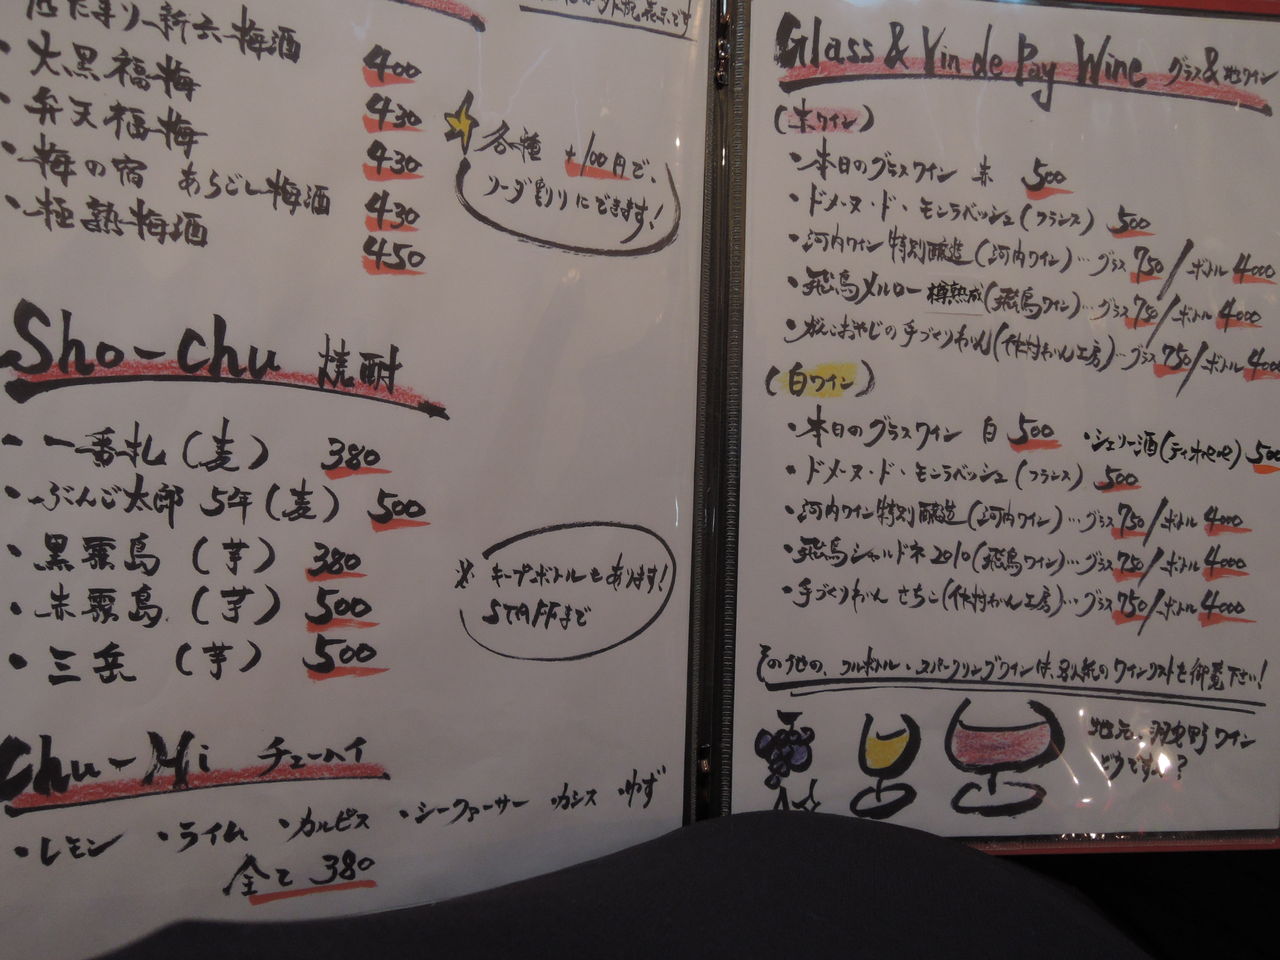 新六梅酒 400
・大黒福梅 430
・弁天福梅 430
・梅の宿 あらごし梅酒 430
・極熟梅酒 450
各種 +100円で、
ソーダ割りにできます!
Sho-Chu 焼酎
・一番札(麦) 380
・ぶんご太郎 5年(麦) 500
・黒霧島(芋) 380
・赤霧島(芋) 500
・三岳(芋) 500
※キープボトルもあります!
STAFFまで
Chu-Hi チューハイ
・レモン ・ライム ・カルピス ・シークァーサー ・カシス ・ゆず
全て 380
Glass & Vin de Pay Wine グラス&地ワイン
(赤ワイン)
・本日のグラスワイン 赤 500
・ドメーヌ・ド・モンラベッシュ(フランス) 500
・河内ワイン 特別醸造(河内ワイン)…グラス750/ボトル4000
・飛鳥メルロー 樽熟成(飛鳥ワイン)…グラス750/ボトル4000
・がんこおやじの手づくりわいん(仲村わいん工房)…グラス750/ボトル4000
(白ワイン)
・本日のグラスワイン 白 500 ・シェリー酒(ティオペペ)500
・ドメーヌ・ド・モンラベッシュ(フランス) 500
・河内ワイン特別醸造(河内ワイン)…グラス750/ボトル4000
・飛鳥シャルドネ2010(飛鳥ワイン)…グラス750/ボトル4000
・手づくりわいん さちこ(仲村わいん工房)…グラス750/ボトル4000
その他の、フルボトル・スパークリングワインは、別紙のワインリストを御覧下さい!
地元、羽曳野ワイン
どうですか?